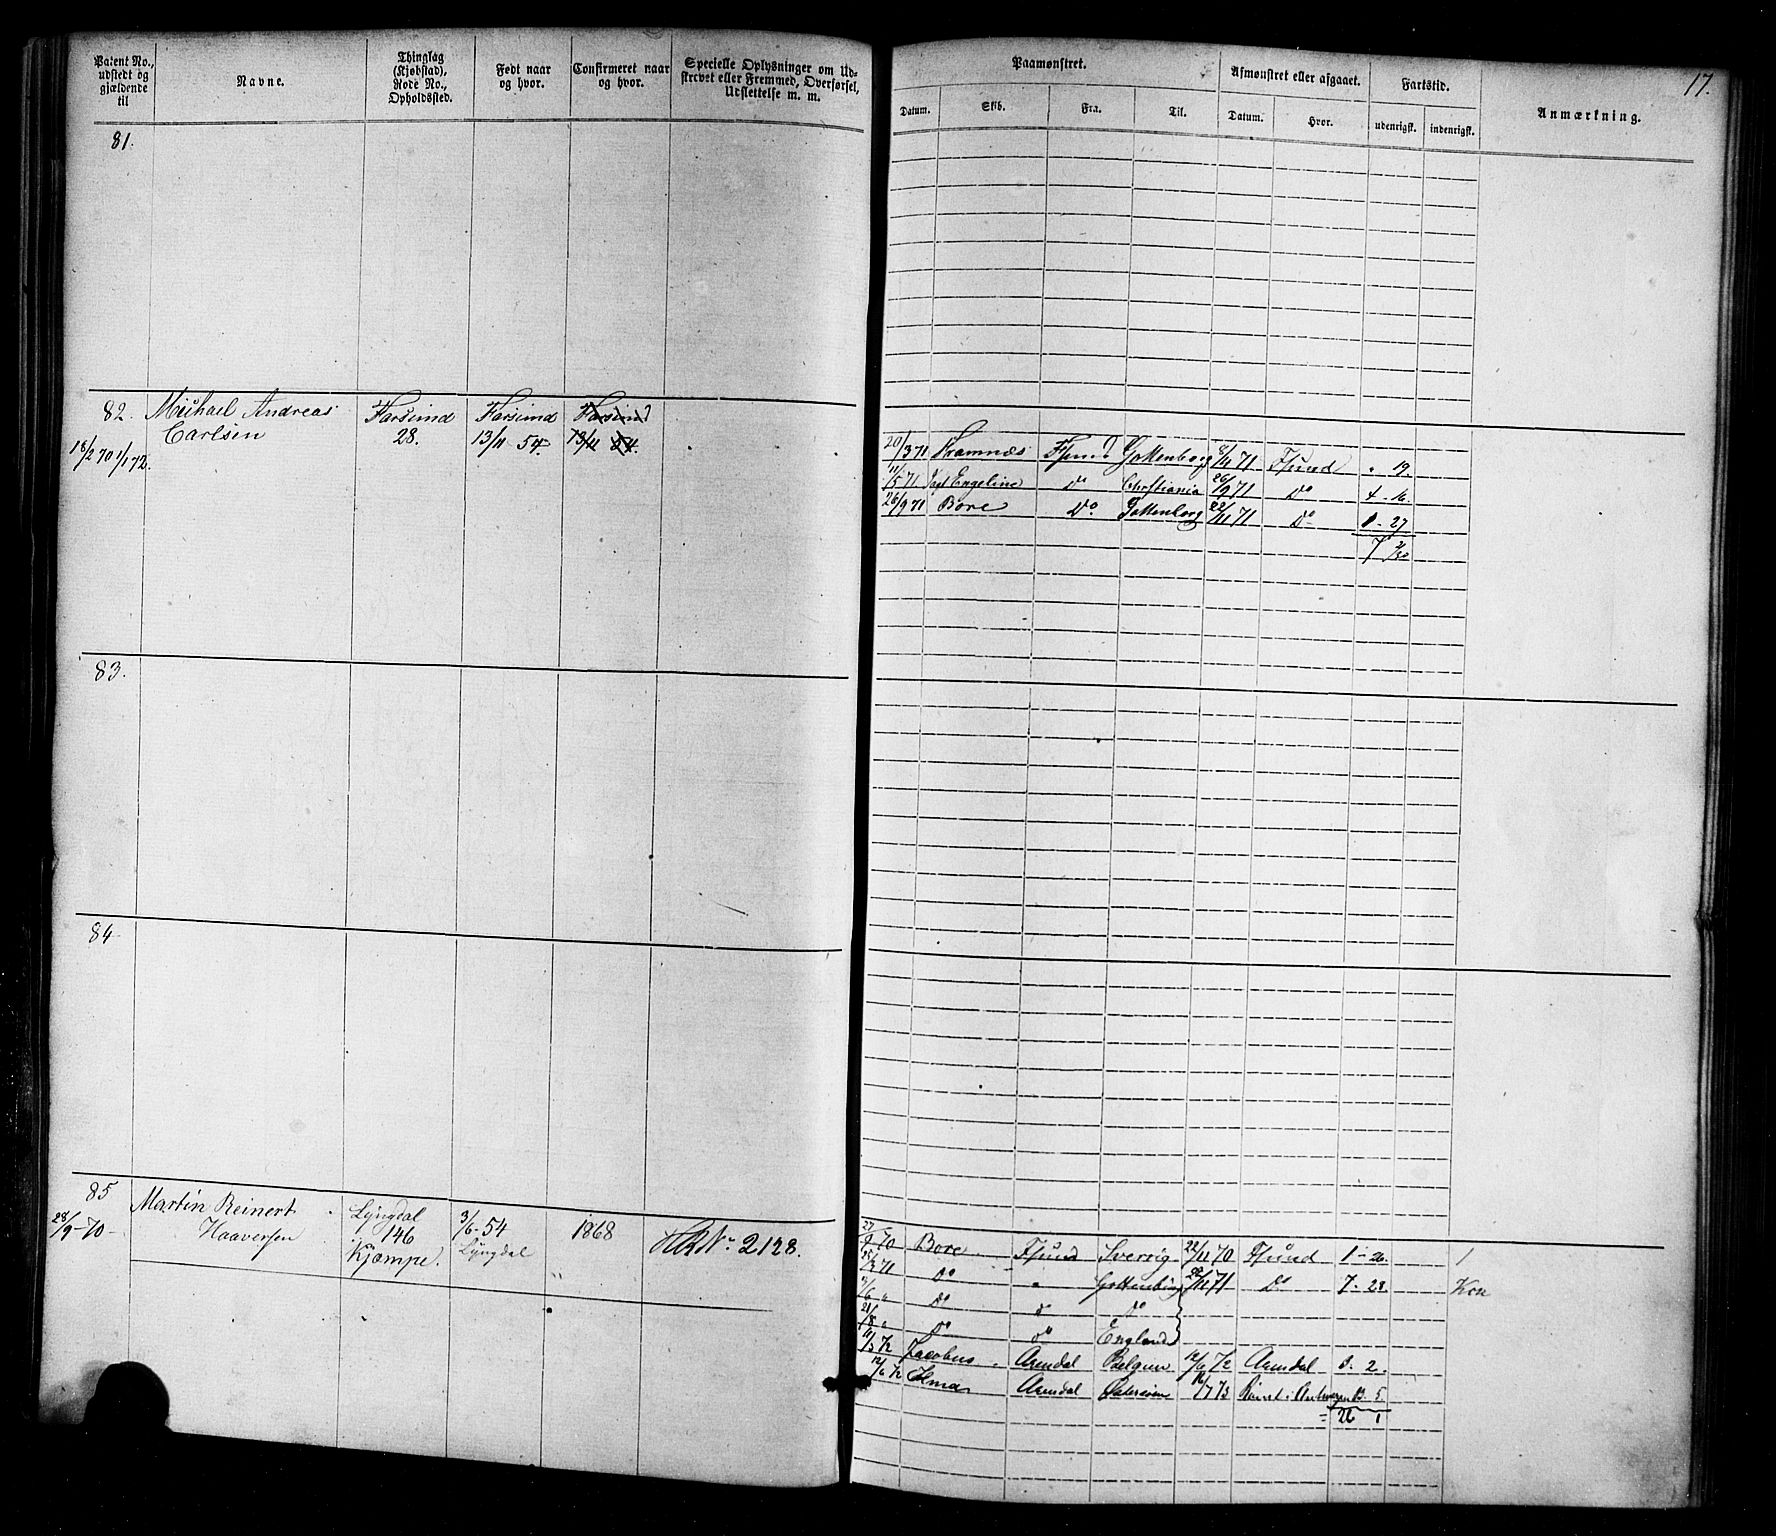 17.
Patent No., udstedt og gjældende til
Navne.
Thinglag (Kjøbstad), Rode No., Opholdssted.
Født naar og hvor.
Confirmeret naar og hvor.
Specielle Oplysninger om Udskrevet eller Fremmed, Overførsel, Udslettelse m. m.
Paamønstret.
Datum. Skib. Fra. Til.
Afmønstret eller afgaaet.
Datum. Hvor.
Fartstid.
udenrigsk. indenrigsk.
Anmærkning.
81.
82. Michael Andreas Farsund Farsund Farsund
Carlsen 28. 13/11 54. 13/11 54.
18/2 70 1/1 72.
20/3 71 Framnæs Fsund Gottenborg 8/4 71 Fsund " 19.
11/5 71 Jagt Engeline Do Christiania 26/9 71 Do 4 - 16.
26/9 71 Bore Do Gottenborg 22/11 71 Do 1 - 27
7 2/30
83.
84.
85 Martin Reinert Lyngdal 3/6 - 54 1868
28/9 - 70 - Haaversen 146 Lyngdal No 2128.
Kjæmpe.
27/9 70 Bore Fsund Sverrig 22/11 70 Fsund 1 - 26. 1
25/3 71 Do " Gottenborg 22/11 71 Do 7 - 28. Kon
/6 " Do Do Do
21/8 " Do Do England
11/5 72 Jacobus Arendal Belgien 12/6 72 Arendal 1. 2.
12/6 72 Arendal 16/7 73 Rømt i Antwerpen 13. 5.
= 26 1